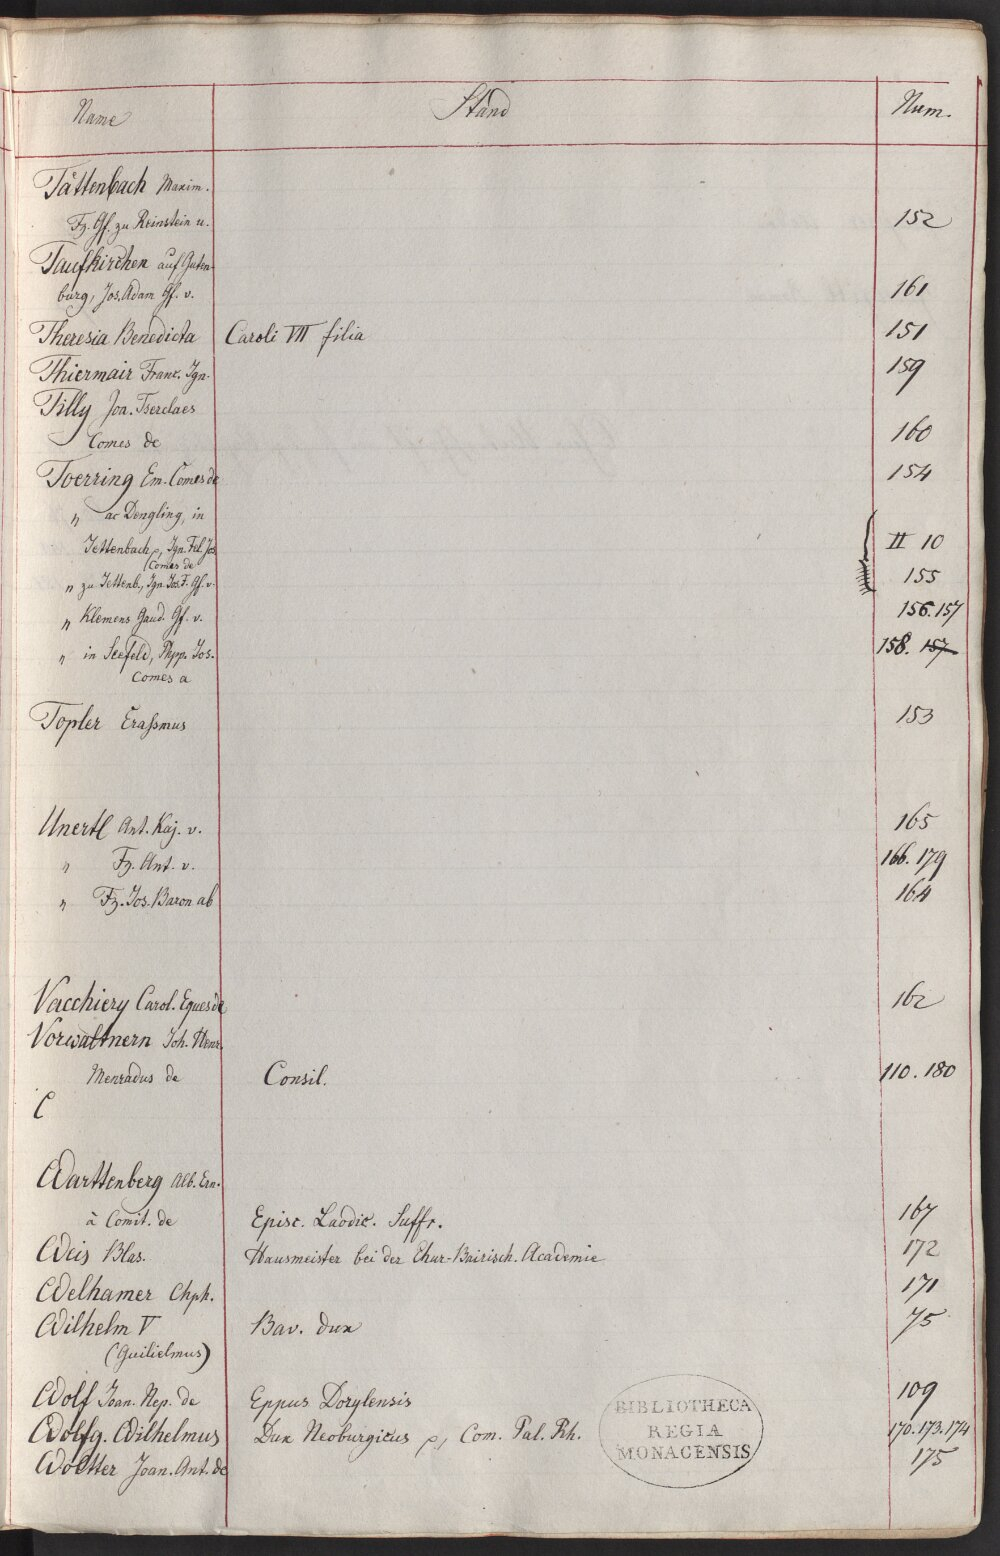 Name Stand Num.
Tättenbach Maxim.
Fz. Gf. zu Reinstein u. 152
Taufkirchen auf Guten-
burg, Jos. Adam Gf. v. 161
Theresia Benedicta Caroli VII filia 151
Thiermair Franc. Ign. 159
Tilly Joa. Tserclaes
Comes de 160
Toerring Em. Comes de 154
" ac Dengling, in
Jettenbach, Ign. Fel. Jos. II 10
Comes de
" zu Jettenb., Ign. Jos. F. Gf. v. 155
" Klemens Gaud. Gf. v. 156. 157
" in Seefeld, Phpp. Jos. 158. 157
Comes a
Topler Eraßmus 153
Unertl Ant. Kaj. v. 165
" Fz. Ant. v. 166. 179
" Fz. Jos. Baron ab 164
Vacchiery Carol. Eques de 162
Vorwaltnern Joh. Henr.
Menradus de Consil. 110. 180
C
Warttenberg Alb. Ern.
à Comit. de Episc. Laodic. Suffr. 167
Weis Blas. Hausmeister bei der Chur-Bairisch. Academie 172
Welhamer Chph. 171
Wilhelm V Bav. dux 75
(Guilielmus)
Wolf Joan. Nep. de Eppus Dorylensis 109
Wolfg. Wilhelmus Dux Neoburgicus , Com. Pal. Rh. 170. 173. 174
Woltter Joan. Ant. de 175
BIBLIOTHECA
REGIA
MONACENSIS